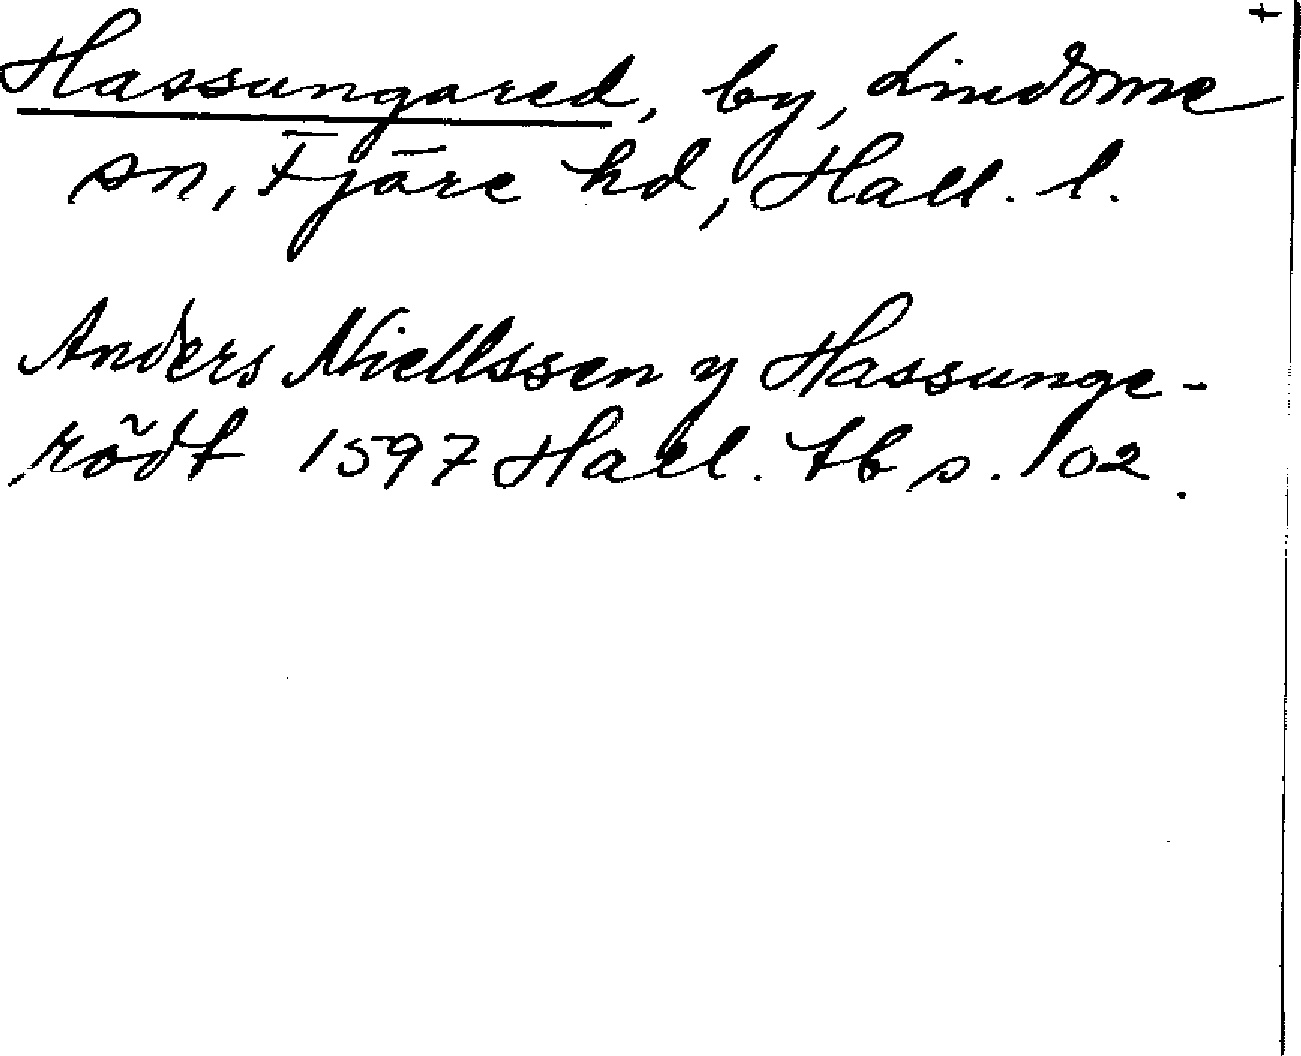 +
Hassungared, by, Lindome
sn, Fjäre hd, Hall. l.
Anders Niellssen y Hassunge-
rödt 1597 Hall. tb s. 102.